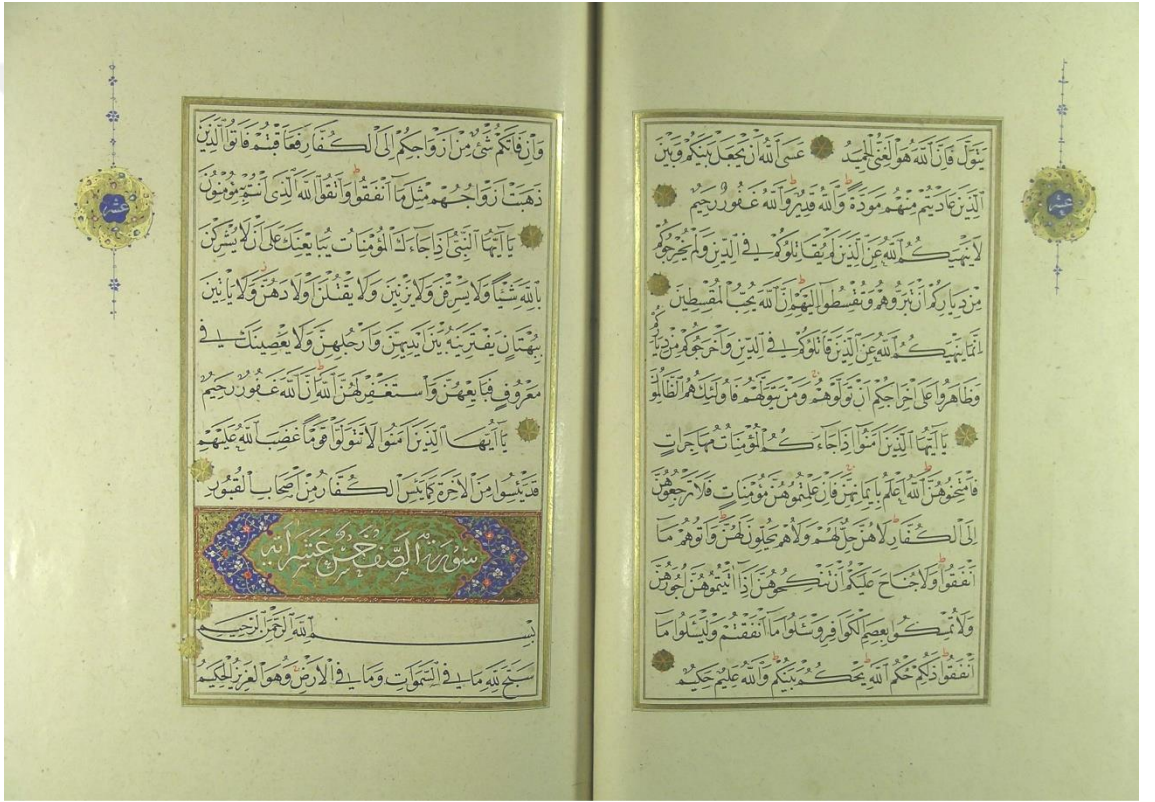 يَتَوَلَّ فَاِنَّ اللّٰهَ هُوَ الْغَنِيُّ الْحَمِيدُ عَسَى اللّٰهُ اَنْ يَجْعَلَ بَيْنَكُمْ وَبَيْنَ
الَّذِينَ عَادَيْتُمْ مِنْهُمْ مَوَدَّةً وَاللّٰهُ قَدِيرٌ وَاللّٰهُ غَفُورٌ رَحِيمٌ
لَا يَنْهٰيكُمُ اللّٰهُ عَنِ الَّذِينَ لَمْ يُقَاتِلُوكُمْ فِي الدِّينِ وَلَمْ يُخْرِجُوكُمْ
مِنْ دِيَارِكُمْ اَنْ تَبَرُّوهُمْ وَتُقْسِطُوا اِلَيْهِمْ اِنَّ اللّٰهَ يُحِبُّ الْمُقْسِطِينَ
اِنَّمَا يَنْهٰيكُمُ اللّٰهُ عَنِ الَّذِينَ قَاتَلُوكُمْ فِي الدِّينِ وَاَخْرَجُوكُمْ مِنْ دِيَارِكُمْ
وَظَاهَرُوا عَلٰى اِخْرَاجِكُمْ اَنْ تَوَلَّوْهُمْ وَمَنْ يَتَوَلَّهُمْ فَاُولٰئِكَ هُمُ الظَّالِمُونَ
يَا اَيُّهَا الَّذِينَ اٰمَنُوا اِذَا جَاءَكُمُ الْمُؤْمِنَاتُ مُهَاجِرَاتٍ
فَامْتَحِنُوهُنَّ اَللّٰهُ اَعْلَمُ بِاِيمَانِهِنَّ فَاِنْ عَلِمْتُمُوهُنَّ مُؤْمِنَاتٍ فَلَا تَرْجِعُوهُنَّ
اِلَى الْكُفَّارِ لَا هُنَّ حِلٌّ لَهُمْ وَلَا هُمْ يَحِلُّونَ لَهُنَّ وَاٰتُوهُمْ مَا
اَنْفَقُوا وَلَا جُنَاحَ عَلَيْكُمْ اَنْ تَنْكِحُوهُنَّ اِذَا اٰتَيْتُمُوهُنَّ اُجُورَهُنَّ
وَلَا تُمْسِكُوا بِعِصَمِ الْكَوَافِرِ وَسْئَلُوا مَا اَنْفَقْتُمْ وَلْيَسْئَلُوا مَا
اَنْفَقُوا ذٰلِكُمْ حُكْمُ اللّٰهِ يَحْكُمُ بَيْنَكُمْ وَاللّٰهُ عَلِيمٌ حَكِيمٌ
عشر
وَاِنْ فَاتَكُمْ شَيْءٌ مِنْ اَزْوَاجِكُمْ اِلَى الْكُفَّارِ فَعَاقَبْتُمْ فَاٰتُوا الَّذِينَ
ذَهَبَتْ اَزْوَاجُهُمْ مِثْلَ مَا اَنْفَقُوا وَاتَّقُوا اللّٰهَ الَّذِي اَنْتُمْ بِهِ مُؤْمِنُونَ
يَا اَيُّهَا النَّبِيُّ اِذَا جَاءَكَ الْمُؤْمِنَاتُ يُبَايِعْنَكَ عَلٰى اَنْ لَا يُشْرِكْنَ
بِاللّٰهِ شَيْئًا وَلَا يَسْرِقْنَ وَلَا يَزْنِينَ وَلَا يَقْتُلْنَ اَوْلَادَهُنَّ وَلَا يَاْتِينَ
بِبُهْتَانٍ يَفْتَرِينَهُ بَيْنَ اَيْدِيهِنَّ وَاَرْجُلِهِنَّ وَلَا يَعْصِينَكَ فِي
مَعْرُوفٍ فَبَايِعْهُنَّ وَاسْتَغْفِرْ لَهُنَّ اللّٰهَ اِنَّ اللّٰهَ غَفُورٌ رَحِيمٌ
يَا اَيُّهَا الَّذِينَ اٰمَنُوا لَا تَتَوَلَّوْا قَوْمًا غَضِبَ اللّٰهُ عَلَيْهِمْ
قَدْ يَئِسُوا مِنَ الْاٰخِرَةِ كَمَا يَئِسَ الْكُفَّارُ مِنْ اَصْحَابِ الْقُبُورِ
سورة الصف خمس عشر اية
بِسْمِ اللّٰهِ الرَّحْمٰنِ الرَّحِيمِ
سَبَّحَ لِلّٰهِ مَا فِي السَّمٰوَاتِ وَمَا فِي الْاَرْضِ وَهُوَ الْعَزِيزُ الْحَكِيمُ
عشر